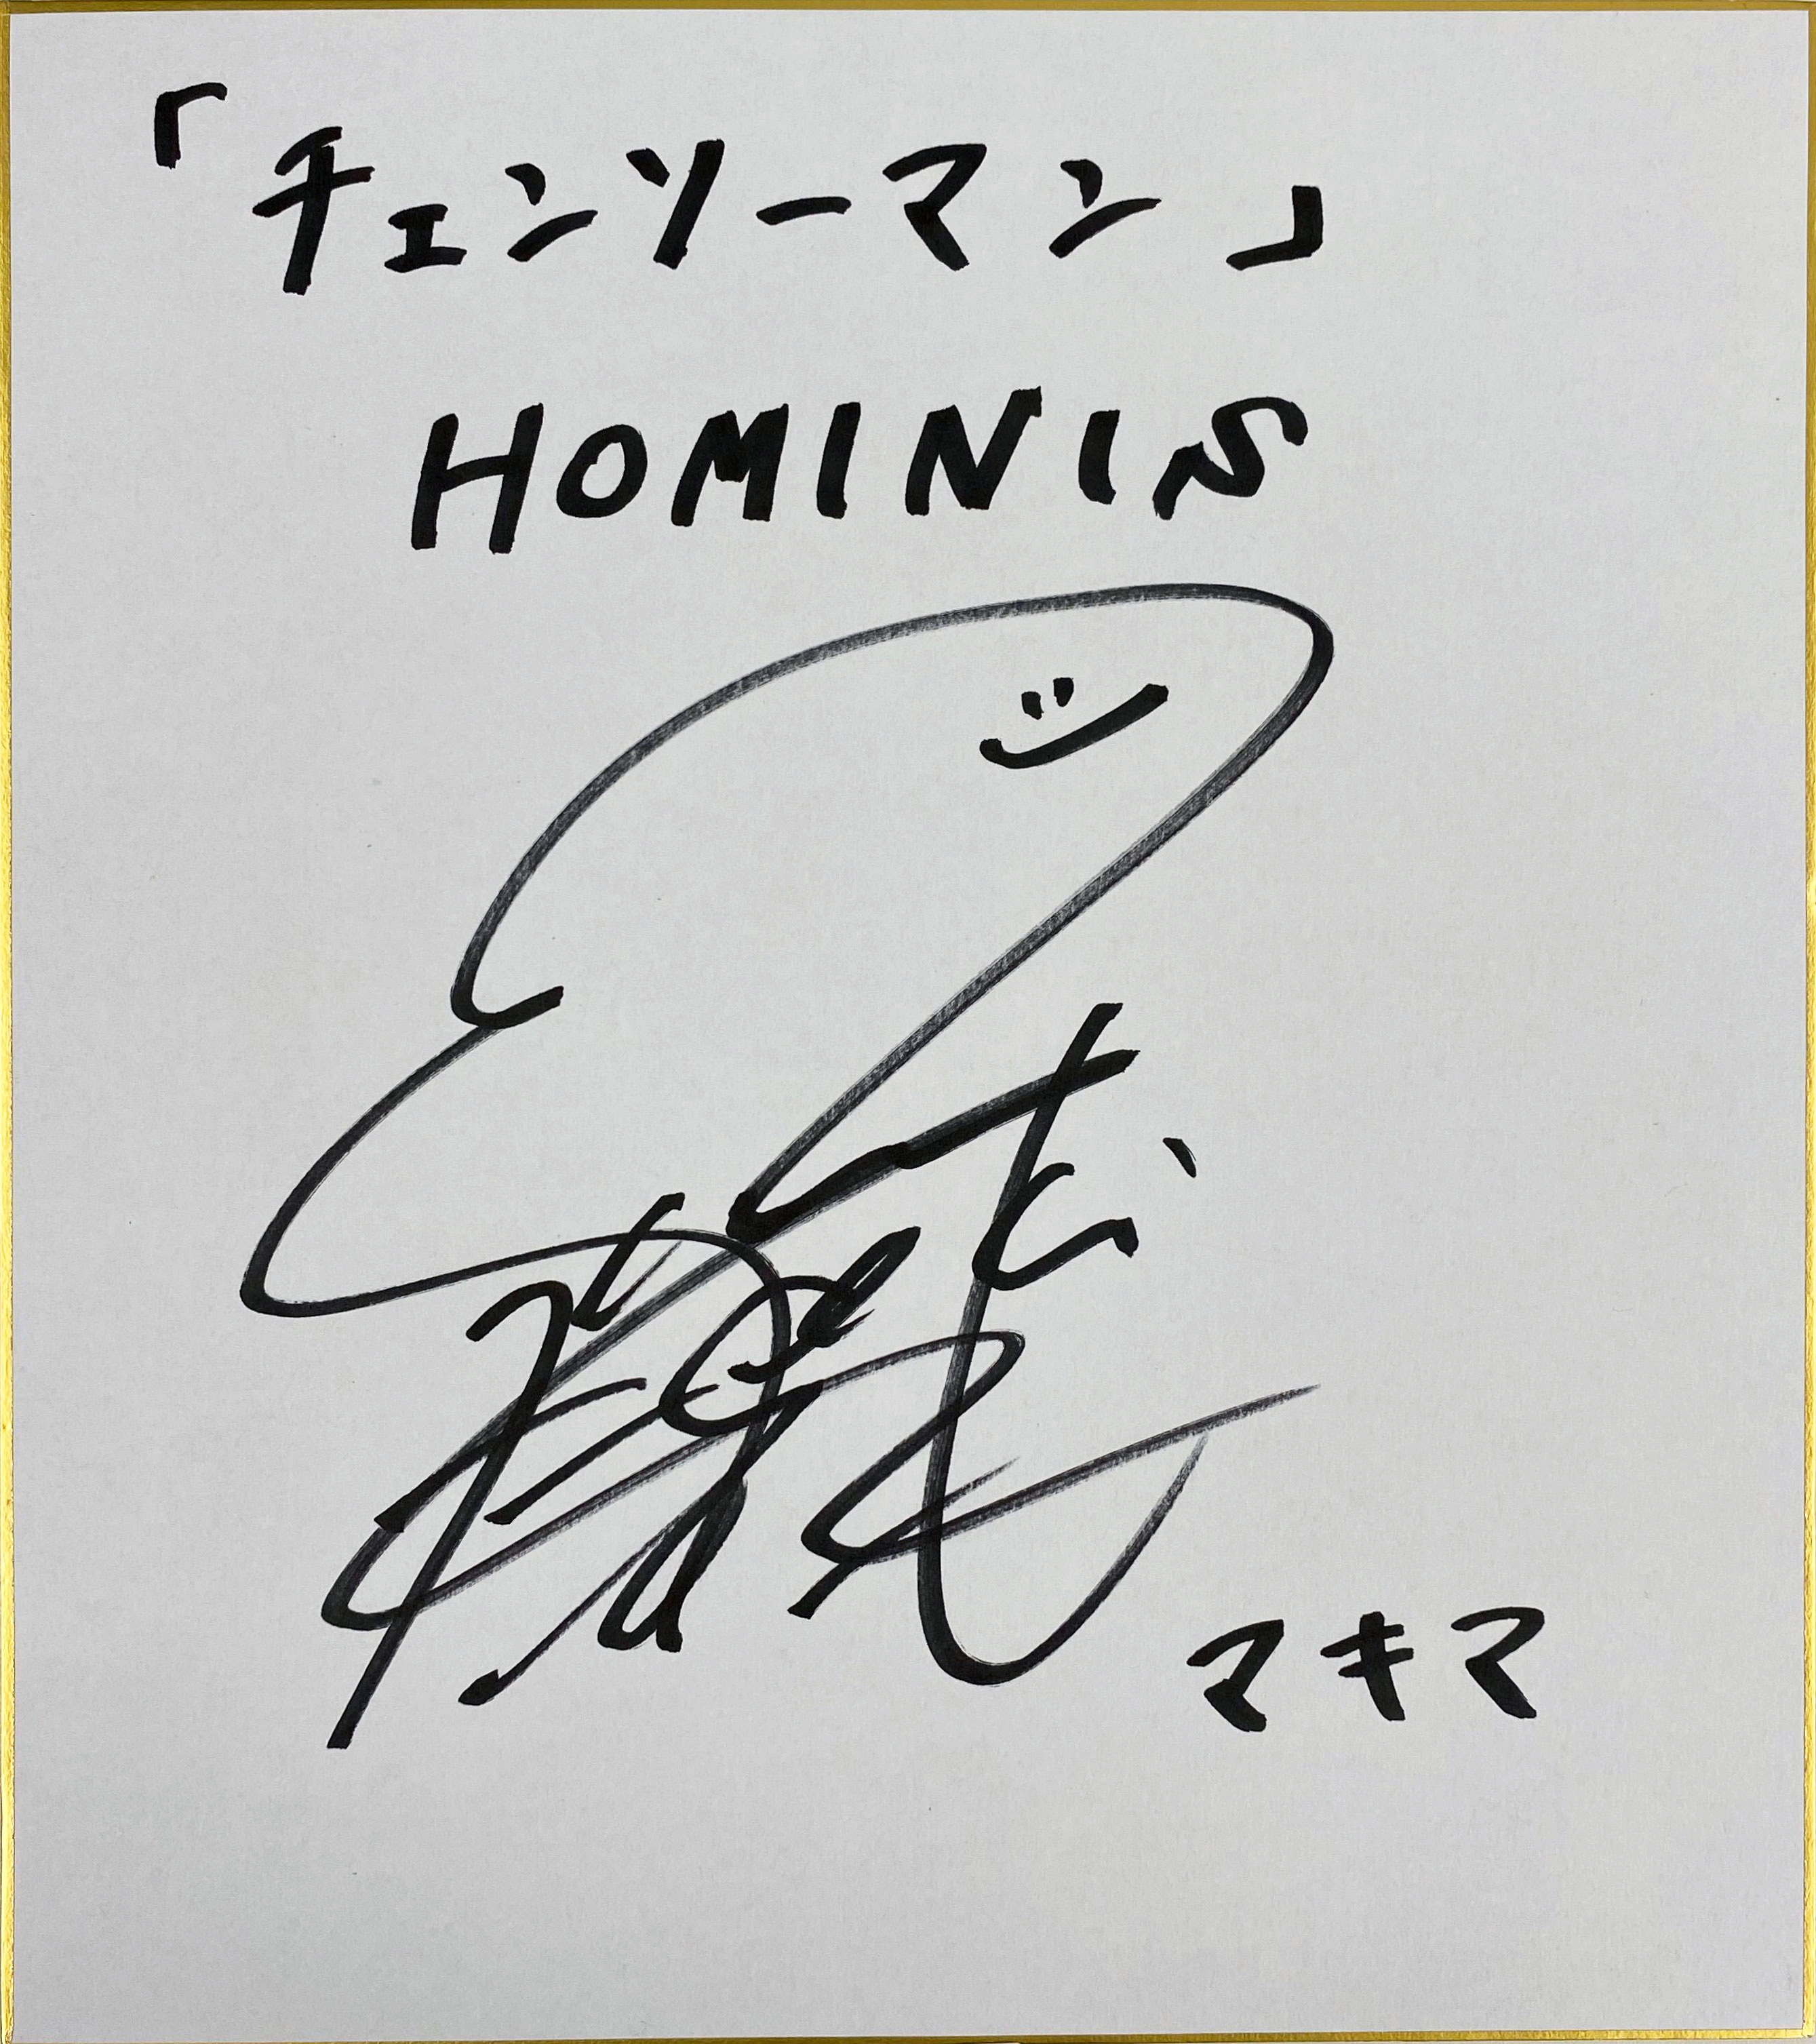 「チェンソーマン」
HOMINIS
マキマ